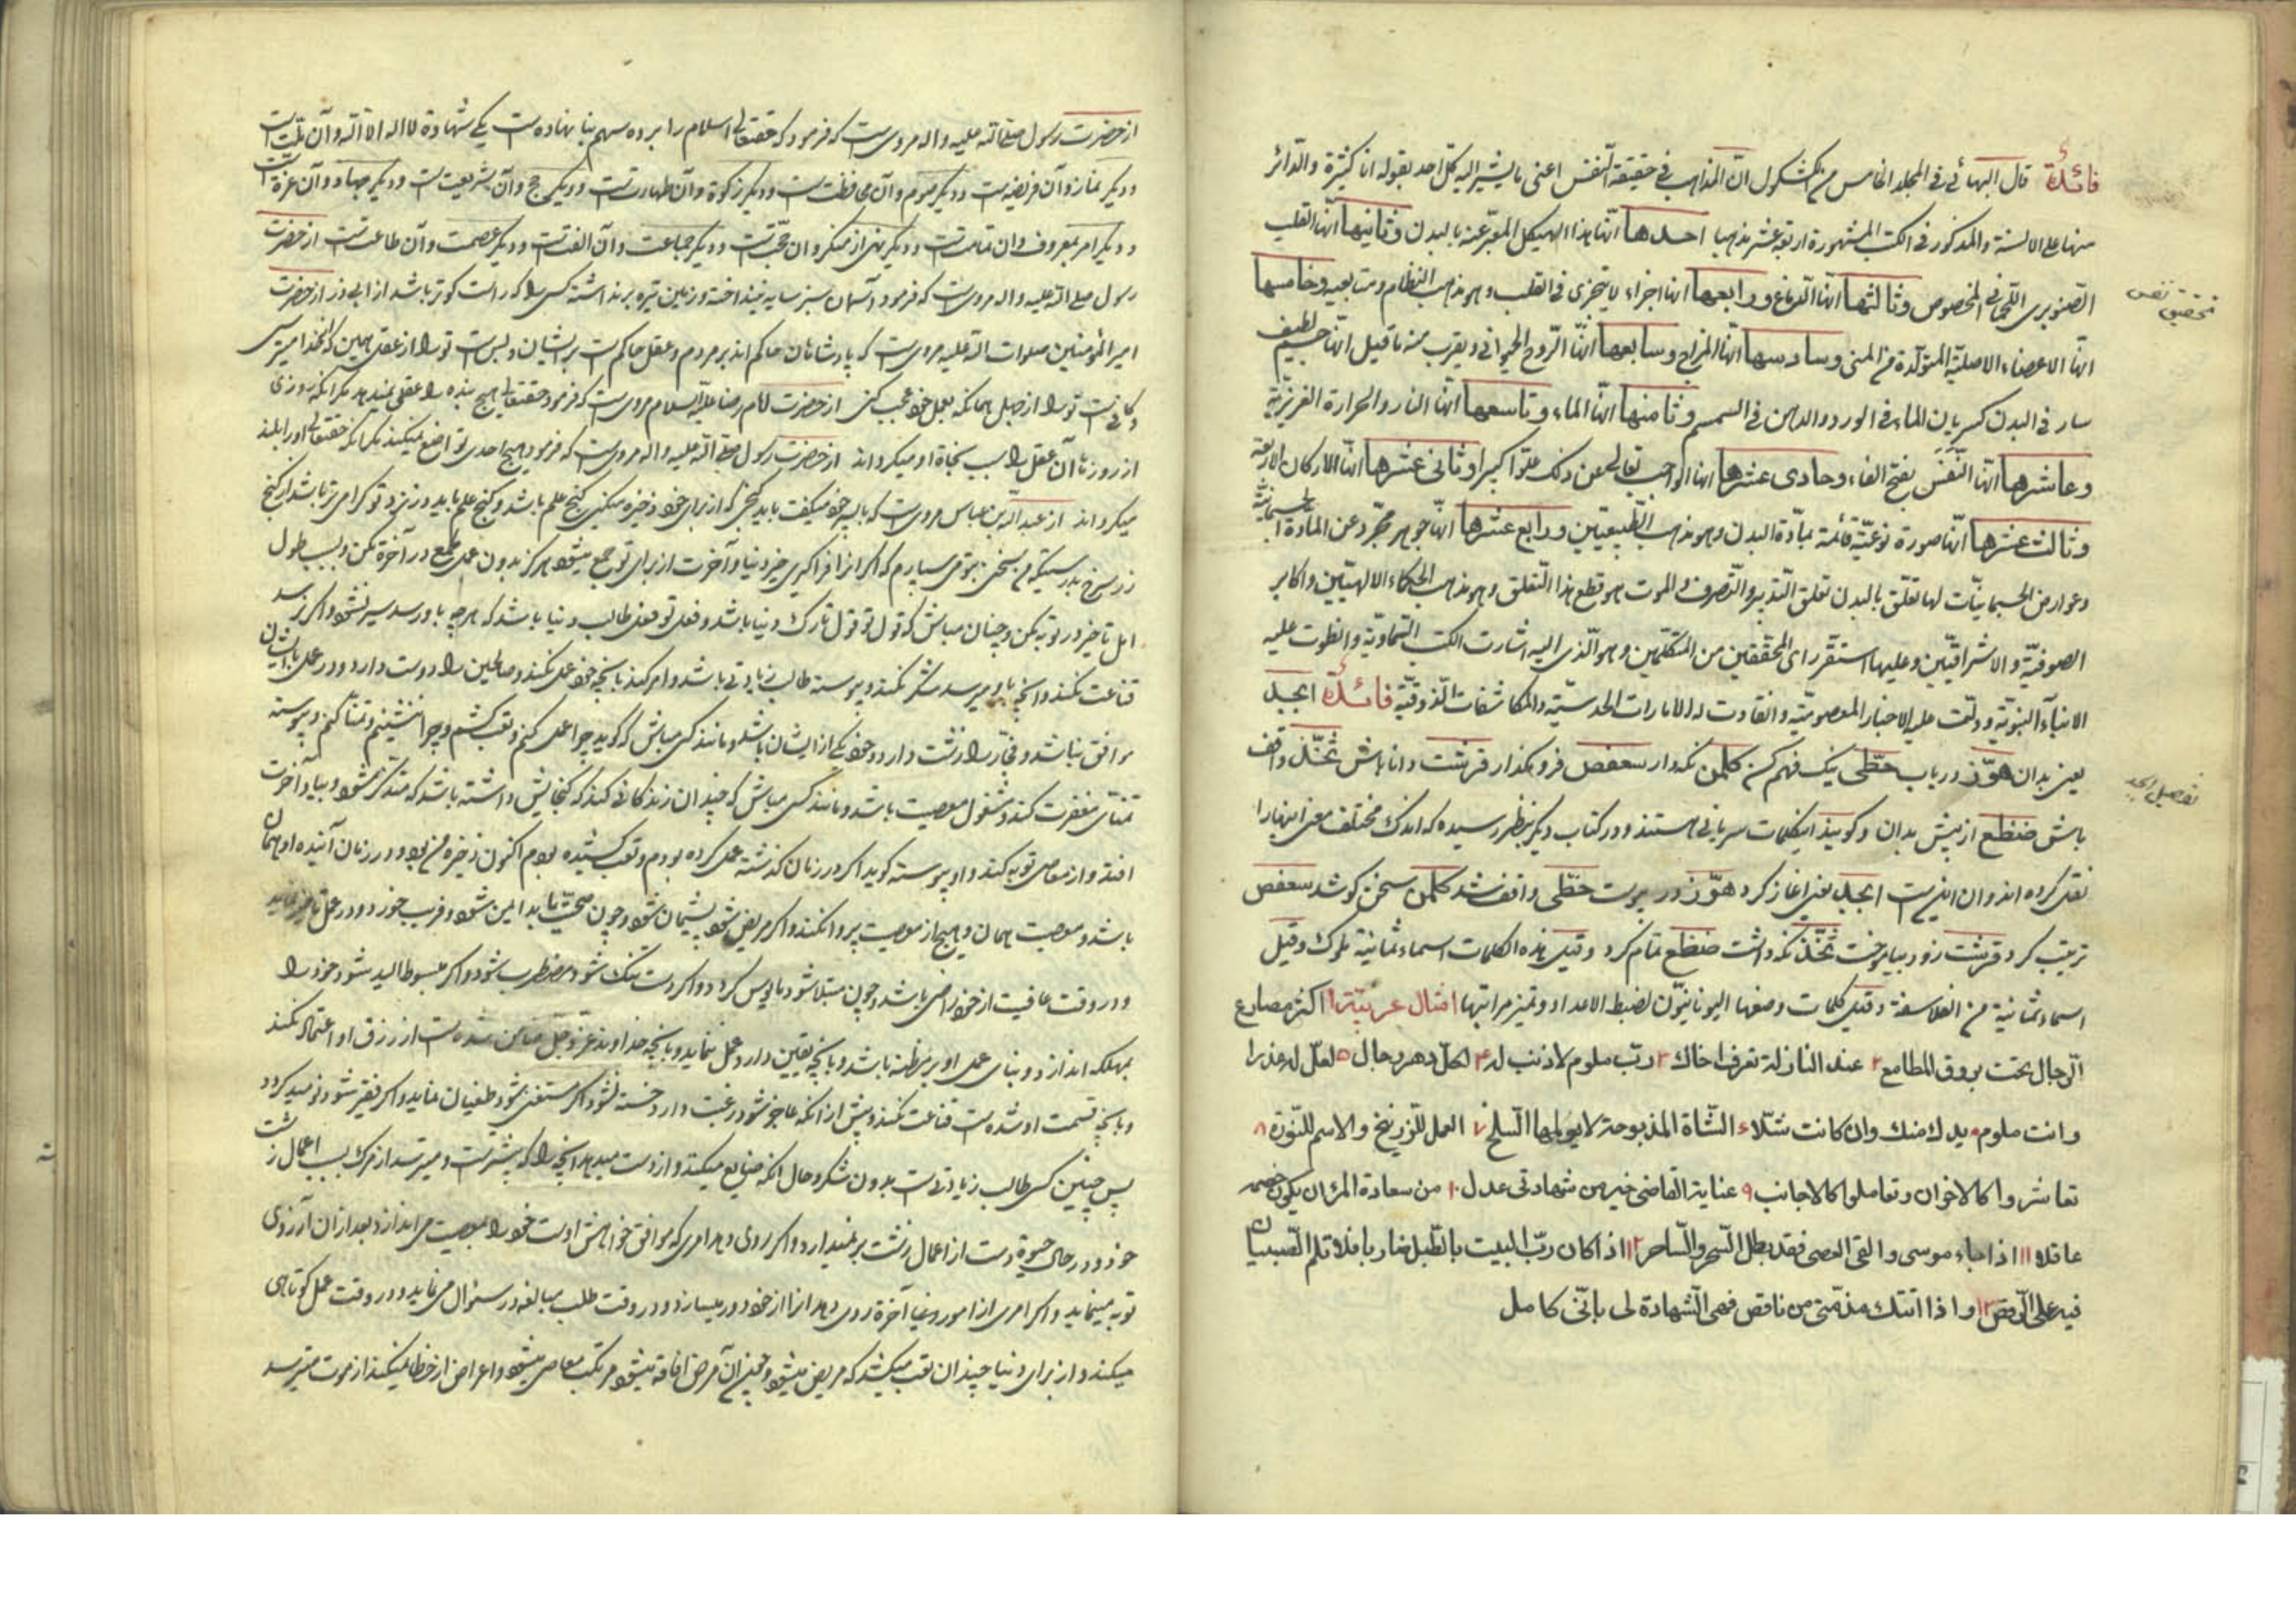 فائدة قال البهائي في المجلد الخامس من الكشكول ان المذاهب في حقيقة النفس اعنى ما يشير اليه كل احد بقوله انا كثيرة والدائر
منها على الالسنة والمذكور في الكتب المشهورة اربعة عشر مذهبا احدها انها هذا الهيكل المعبر عنه بالبدن وثانيها انها القلب
تحقيق نفس
الصنوبرى اللحمانى المخصوص وثالثها انها الدماغ ورابعها انها اجزاء لا يتجزى في القلب وهو مذهب النظام ومتابعيه وخامسها
انها الاعضاء الاصلية المتولدة من المنى وسادسها انها المزاج وسابعها انها الروح الحيوانى ويقرب منه ما قيل انها جسم لطيف
سار في البدن كسريان الماء في الورد والدهن في السمسم وثامنها انها الماء وتاسعها انها النار والحرارة الغريزية
وعاشرها انها النفس بفتح الفاء وحادى عشرها انها الواجب تعالى عن ذلك علوا كبيرا وثانى عشرها انها الاركان الاربعة
وثالث عشرها انها صورة نوعية قائمة بمادة البدن وهو مذهب الطبيعيين ورابع عشرها انها جوهر مجرد عن المادة الجسمانية
وعوارض الجسمانيات لها تعلق بالبدن تعلق التدبير والتصرف والموت هو قطع هذا التعلق وهو مذهب الحكماء الالهيين واكابر
الصوفية والاشراقيين وعليها استقر راى المحققين من المتكلمين وهو الذى اليه اشارت الكتب السماوية وانطوت عليه
الانباء النبوية ودلت عليه الاخبار المعصومية وانقادت له الامارات الحدسية والمكاشفات الذوقية فائدة ابجد
تفصيل ابجد
يعنى بدان هوّز درياب حطّى نيك فهم كن كلمن نكه دار سعفص فرو مگذار قرشت دانا باش ثخّذ واقف
باش ضظغ از پيش بدان وكويند اينكلمات سريانى هستند ودر كتاب ديكر بنظر رسيده كه اندك مختلف معنى اينها را
نقل كرده اند وان اينست ابجد يعنى اغاز كرد هوّز در پيوست حطّى واقف شد كلمن سخن كوشد سعفص
ترتيب كرد قرشت زود بياموخت ثخّذ نكه داشت ضظغ تمام كرد وقيل هذه الكلمات اسماء ثمانية ملوك وقيل
اسماء ثمانية من الفلاسفة وقيل كلمات وضعها اليونانيون لضبط الاعداد وتميز مراتبها امثال عربية ۱ اكثر مصارع
الرجال تحت بروق المطامع ۲ عند النازلة تعرف اخاك ۳ رب ملوم لا ذنب له ۴ لكل دهر رجال ۵ لعل له عذرا
وانت ملوم ۶ يدك منك وان كانت شلاء الشاة المذبوحة لا يولمها السلخ ۷ العمل للزرنيخ والاسم للنورة ۸
تعاشروا كالاخوان وتعاملوا كالاجانب ۹ عناية القاضى خير من شهادتى عدل ۱۰ من سعادة المرء ان يكون خصمه
عاقلا ۱۱ اذا جاء موسى والقى العصى فقد بطل السحر والساحر ۱۲ اذا كان رب البيت بالطبل ضاربا فلا تلم الصبيان
فيه على الرقص ۱۳ واذا اتتك مذمتى من ناقص فهى الشهادة لى بانى كامل
از حضرت رسول صلى الله عليه واله مرويست كه فرمود كه حقتعالى اسلام را بر ده سهم بنا نهاده است يكى شهادة لا اله الا الله وآن ملت است
وديكر نماز وآن فريضه است وديكر صوم وآن محافظتست وديكر زكوة وآن طهارتست وديكر حج وآن شريعتست وديكر جهاد وآن عزة است
وديكر امر بمعروف وآن تمامتست وديكر نهى از منكر وان حجتست وديكر جماعت وآن الفتست وديكر عصمت وآن طاعتست از حضرت
رسول صلى الله عليه واله مرويست كه فرمود آسمان سبز سايه نينداخته وزمين تيره برنداشته كسى را كه راست كوتر باشد از ابى ذر از حضرت
امير المؤمنين صلوات الله عليه مرويست كه پادشاهان حاكم اند بر مردم وعقل حاكم است بر ايشان وبس است تو را از عقل همين كه از خدا ميترسى
وكافيست تو را از جهل همانكه بعمل خود عجب كنى از حضرت امام رضا عليه السلام مرويست كه فرمود حقتعالى هيچ بنده را عقل نميدهد مكر انكه روزى
از روزها آن عقل را سبب نجاة او ميكرداند از حضرت رسول صلى الله عليه واله مرويست كه فرمود هيچ احدى تواضع نميكند مكر انكه حقتعالى او را بلند
ميكرداند از عبد الله بن عباس مرويست كه با پسر خود ميكفت بايد كنجى كه از براى خود ذخيره ميكنى كنج علم باشد وكنج علم بايد در نزد تو كرامى تر باشد از كنج
زر سرخ بدرستيكه من سخنى بتو مى سپارم كه اكر انرا فراكيرى خير دنيا وآخرت از براى تو جمع ميشود هركز بدون عمل طمع در آخرة مكن وبسبب طول
امل تاخير در توبه مكن وچنان مباش كه قول تو قول تارك دنيا باشد وفعل تو فعل طالب دنيا باشد كه هر چه باو رسد سير نشود واكر نرسد
قناعت نكند وانچه باو ميرسد شكر نكند وپيوسته طالب زيادتى باشد وامر كند بانچه خود عمل نكند وصالحين را دوست دارد ودر عمل با ايشان
موافق نباشد وفجار را زشت دارد وخود يكى از ايشان باشد ومانند كسى مباش كه كويد چرا عمل كنم وتعب كشم وچرا ننشينم وتمنا نكنم وپيوسته
تمناى مغفرت كند ومشغول معصيت باشد ومانند كسى مباش كه چندان زندكانى كند كه كنجايش داشته باشد كه متذكر شود وبياد آخرت
افتد واز معاصى توبه كند واو پيوسته كويد اكر در زمان كذشته عمل كرده بودم وتعب كشيده بودم اكنون ذخيره من بود ودر زمان آينده او همان
باشد ومعصيت همان وهيچ از معصيت پروا نكند واكر مريض شود پشيمان شود وچون صحت يابد ايمن شود وفريب خورد ودر عمل تاخير نمايد
ودر وقت عافيت از خود راضى باشد وچون مبتلا شود مايوس كردد واكر دست تنك شود مضطرب شود واكر مبسوط اليد شود خود را
بمهلكه اندازد وبناى عمل او بر مظنه باشد وبانچه يقين دارد عمل ننمايد وبانچه خداوند عز وجل ضامن شده است از رزق او اعتماد نكند
وبانچه قسمت او شده است قناعت نكند وپيش از انكه عاجز شود رغبت دارد خسته شود اكر مستغنى شود طغيان نمايد واكر فقير شود نوميد كردد
پس چنين كسى طالب زيادتيست بدون شكر وحال انكه ضايع ميكند واز دست ميدهد انچه را كه بيشتر است وميترسد از مرك بسبب اعمال زشت
خود ودر حال حيوة دست از اعمال زشت بر نميدارد واكر روى دهد امرى كه موافق خواهش اوست خود را بمعصيت مى اندازد وبعد از ان آرزوى
توبه مينمايد واكر امرى از امور دنيا آخرة روى دهد انرا از خود دور ميسازد ودر وقت طلب مبالغه در سئوال مى نمايد ودر وقت عمل كوتاهى
ميكند واز براى دنيا چندان تعب ميكشد كه مريض ميشود وچون از آن مرض افاقه ميشود مرتكب معاصى ميشود واعراض از خطا نميكند از موت ميترسد